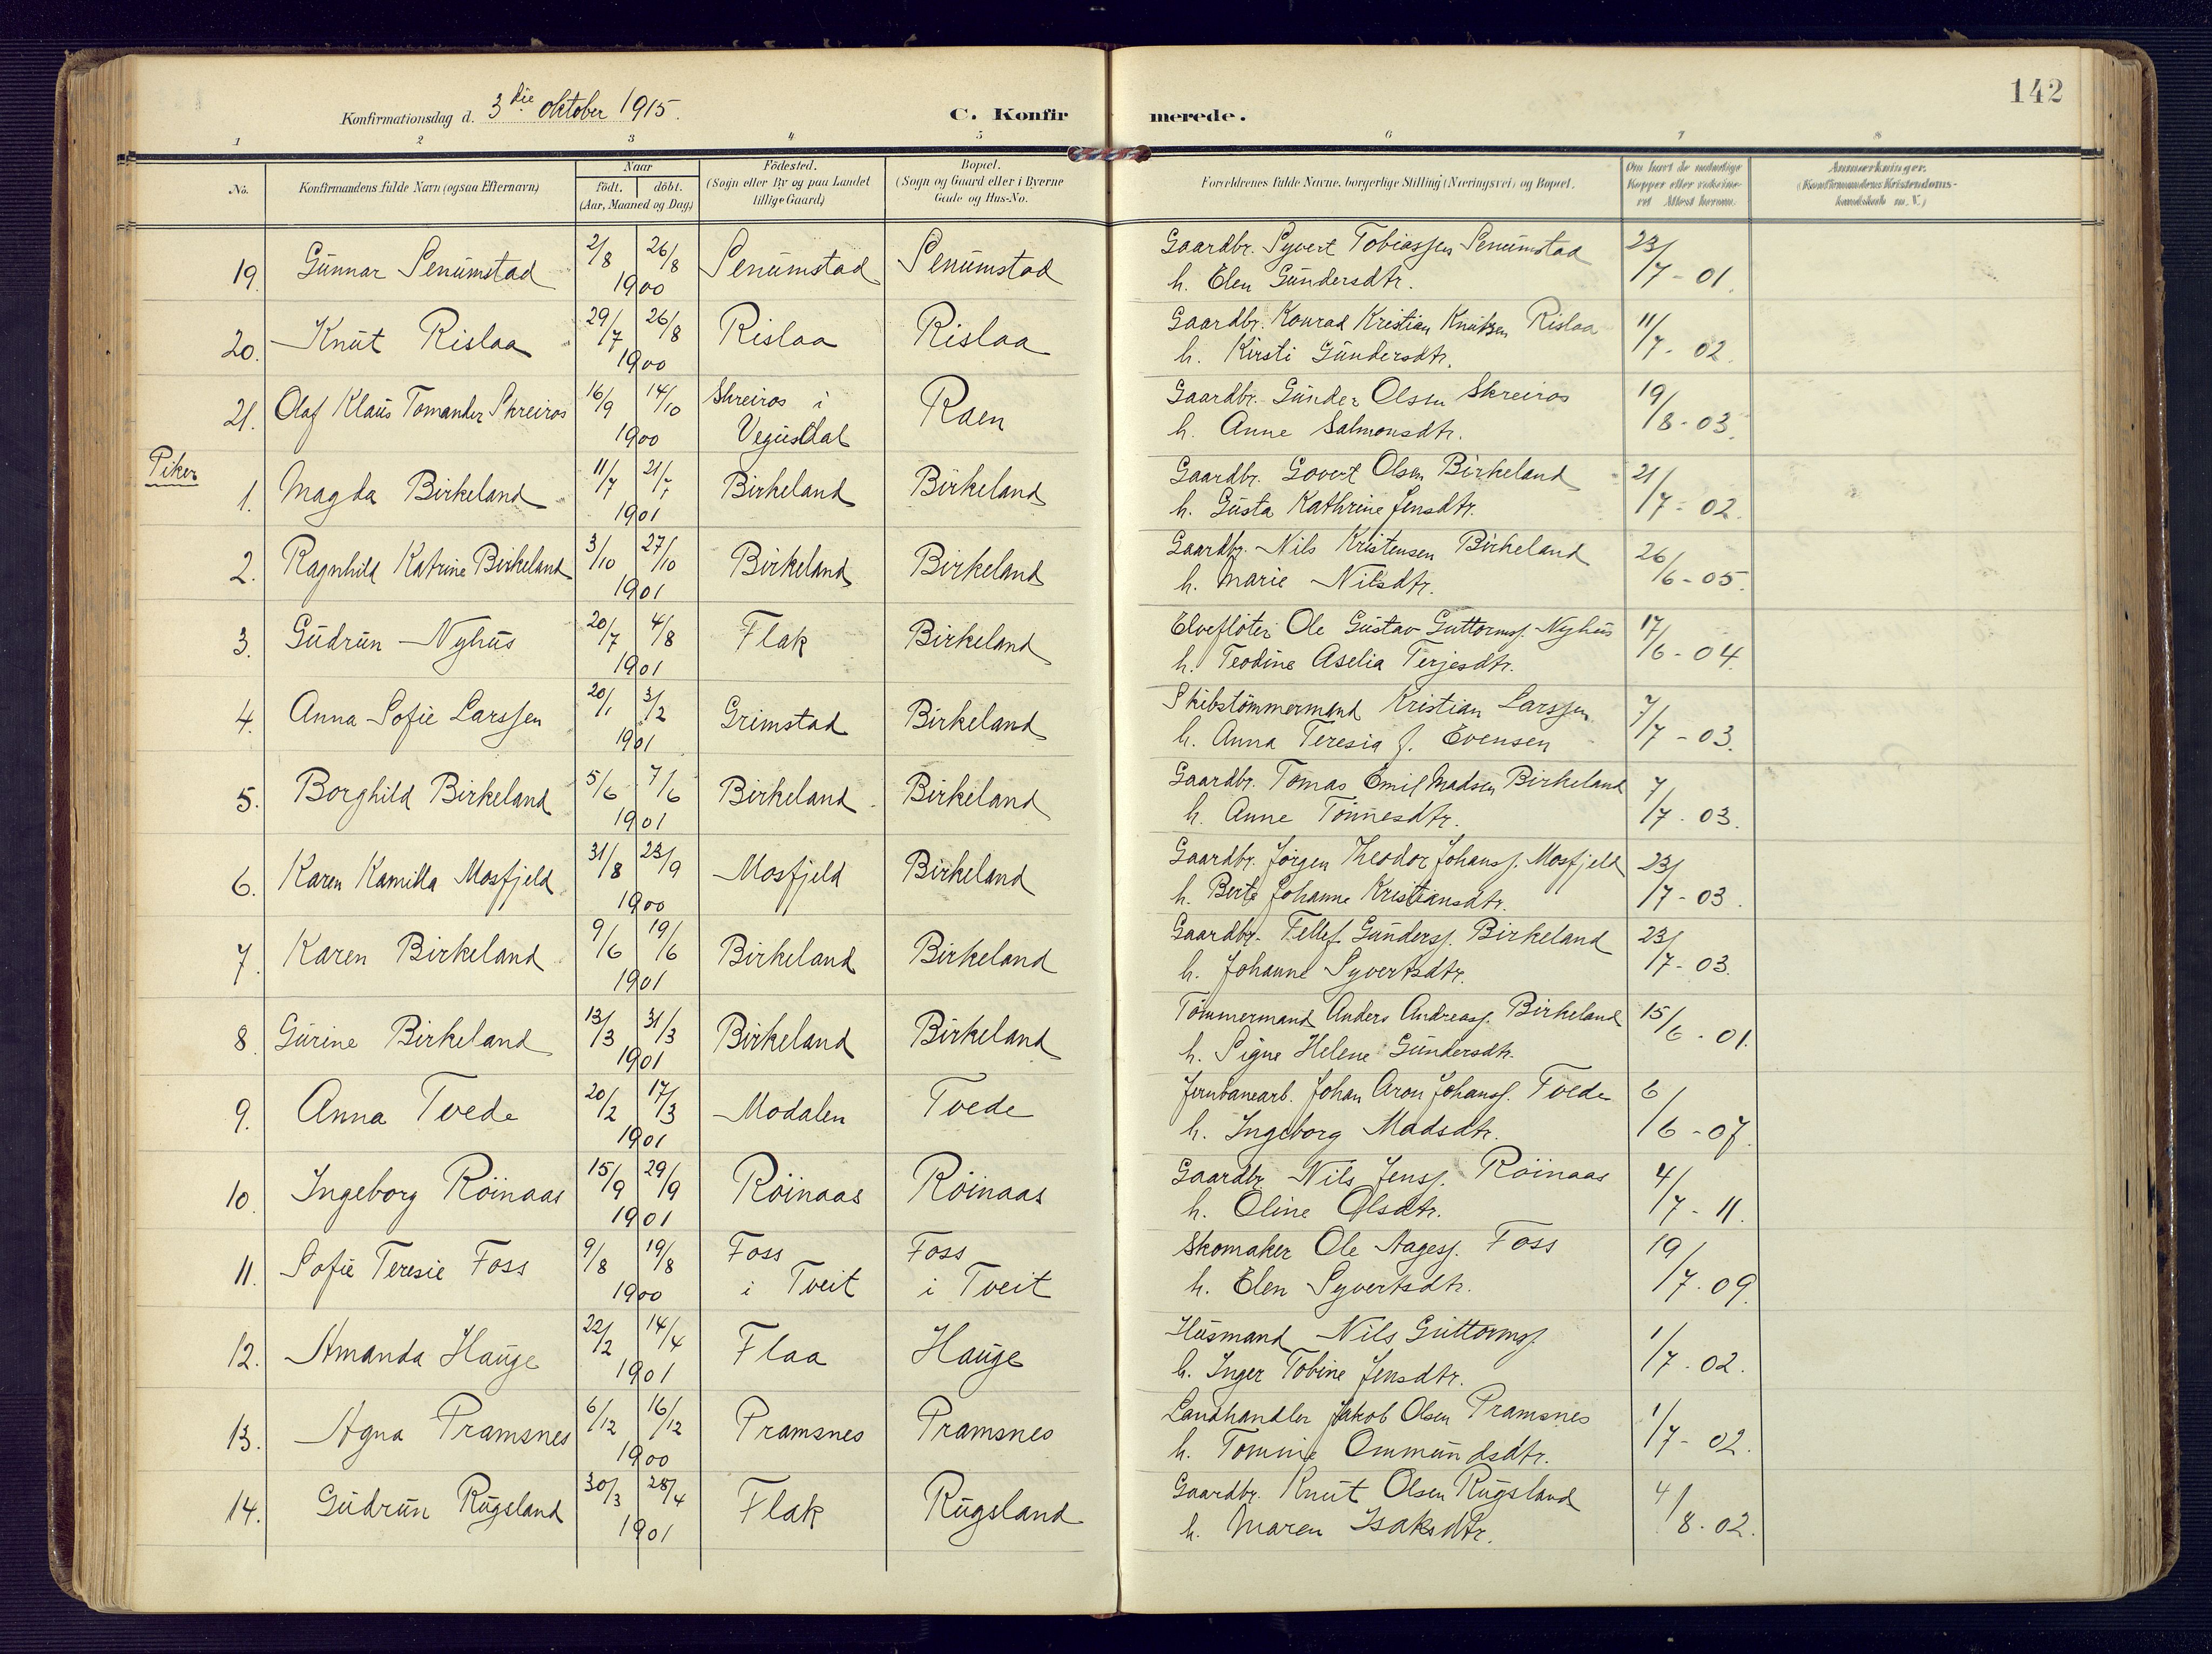 142
Konfirmationsdag d. 3die oktober 1915.
C. Konfirmerede.
1 2 3 4 5 6 7 8
No. Konfirmandens fulde Navn (ogsaa Efternavn) Naar födt. döbt. (Aar, Maaned og Dag) Födested. (Sogn eller By og paa Landet tillige Gaard) Bopæl. (Sogn og Gaard eller i Byerne Gade og Hus-No. Forældrenes fulde Navne, borgerlige Stilling (Næringsvei) og Bopæl. Om havt de naturlige Kopper eller vaksineret Attest herom. Anmærkninger. (Konfirmandens Kristendomskundskab m. V.)
19. Gunnar Senumstad 2/8 26/8 1900 Senumstad Senumstad Gaardbr. Syvert Tobiassen Senumstad 23/7 - 01.
h. Elen Gundersdtr.
20. Knut Rislaa 29/7 26/8 1900 Rislaa Rislaa Gaardbr. Konrad Kristian Knutsen Rislaa 11/7 - 02.
h. Kirsti Gundersdtr.
21. Olaf Klaus Tomander Skreiros 16/9 14/10 1900 Skreiros i Vegusdal Raen Gaardbr. Gunder Olsen Skreiros 19/8 - 03.
h. Anne Salmonsdtr.
Piker
1. Magda Birkeland 11/7 21/7 1901 Birkeland Birkeland Gaardbr. Govert Olsen Birkeland 21/7 - 02.
h. Gusta Kathrine Jensdtr.
2. Ragnhild Katrine Birkeland 3/10 27/10 1901 Birkeland Birkeland Gaardbr. Nils Kristensen Birkeland 26/6 - 05.
h. Marie Nilsdtr.
3. Gudrun Nyhus 20/7 4/8 1901 Flak Birkeland Elvefloter Ole Gustav Guttormsf. Nyhus 17/6 - 04.
h. Teodine Aselia Terjesdtr.
4. Anna Sofie Larssen 20/1 3/2 1901 Grimstad Birkeland Skibstömmermand Kristian Larssen 7/7 - 03.
h. Anna Teresia f. Evensen
5. Borghild Birkeland 5/6 7/6 1901 Birkeland Birkeland Gaardbr. Tomas Emil Madsen Birkeland 7/7 . 03.
h. Anne Tönnesdtr.
6. Karen Kamilla Mosfjeld 31/8 23/9 1900 Mosfjeld Birkeland Gaardbr. Jörgen Theodor Johansf. Mosfjeld 23/7 - 03.
h. Berte Johanne Kristiansdtr.
7. Karen Birkeland 9/6 19/6 1901 Birkeland Birkeland Gaardbr. Tellef Gundersf. Birkeland 23/7 - 03.
h. Johanne Syvertsdtr.
8. Gurine Birkeland 13/3 31/3 1901 Birkeland Birkeland Tömmermand Anders Andreasf. Birkeland 15/6 - 01.
h. Signe Helene Gundersdtr.
9. Anna Tvede 20/2 17/3 1901 Modalen Tvede Jernbanearb. Johan Aron Johansf. Tvede 6/6 - 07.
h. Ingeborg Madsdtr.
10. Ingeborg Röinaas 15/9 29/9 1901 Röinaas Röinaas Gaardbr. Nils Jensf. Röinaas 4/7 - 11.
h. Oline Olsdtr.
11. Sofie Teresie Foss 9/8 19/8 1900 Foss i Tveit Foss i Tveit Skomaker Ole Aagesf. Foss 19/7 . 09.
h. Elen Syvertsdtr.
12. Amanda Hauge 22/2 14/4 1901 Flaa Hauge Husmand Nils Guttormsf. 1/7 . 02.
h. Inger Tobine Jensdtr.
13. Agna Pramsnes 6/12 16/12 1900 Pramsnes Pramsnes Landhandler Jakob Olsen Pramsnes 1/7 - 02.
h. Tomine Ommundsdtr.
14. Gudrun Rugsland 30/3 28/4 1901 Flak Rugsland Gaardbr. Knut Olsen Rugsland 4/8 . 02.
h. Maren Isaksdtr.